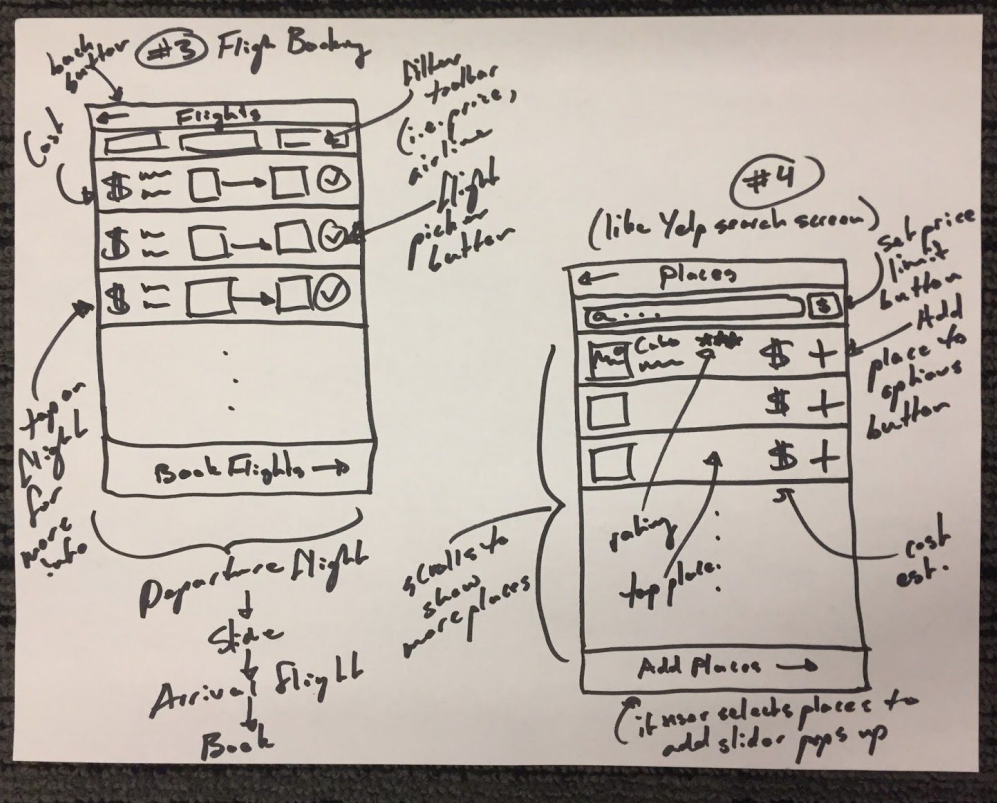 #3 Fligh Booking
back
button
Cost
← Flights
filter
toolbar
(i.e. price,
airline
flight
picker
button
$
$
$
tap on
flight
for
more
info
Book Flights →
Departure flight
↓
Slide
↓
Arrival flight
↓
Book
#4
(like Yelp search screen)
← Places
...
$
set price
limit
button
Add
place to
options
button
*** $ +
$ +
$ +
rating
tap place
cost
est.
scrolls to
show
more places
Add Places →
if user selects places to
add slider pops up